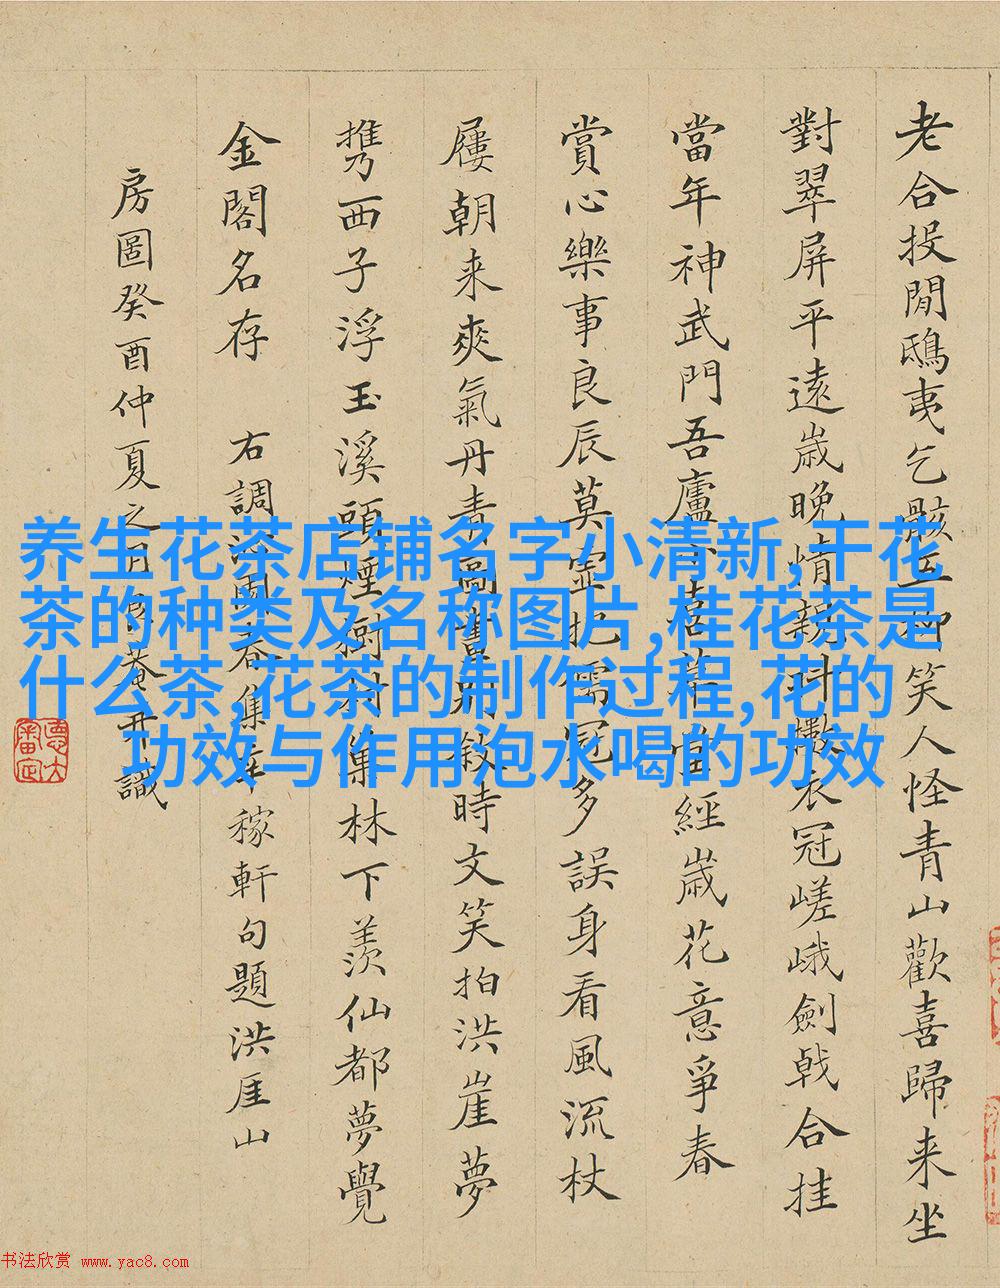 老合投閒鴟夷乞骸五柳笑人怪青山歡喜歸来坐
對翠屏平遠歲晚情親斗擻衣冠嵯峨劍戟合挂
當年神武門吾廬喜宜經歲花意爭春
賞心樂事良辰莫虛把儒冠多誤身看風流杖
屨朝来爽氣丹青圖畫別敘時文笑拍洪崖夢
携西子浮玉溪頭煙樹村巢林下羨仙都夢覺
金閣名存 右調沁園春集辛稼軒句題洪厓山
房圖癸酉仲夏之月菴識
养生花茶店铺名字小清新,干花
茶的种类及名称图片,桂花茶是
什么茶,花茶的制作过程,花的
功效与作用泡水喝的功效
书法欣赏 www.yac8.com